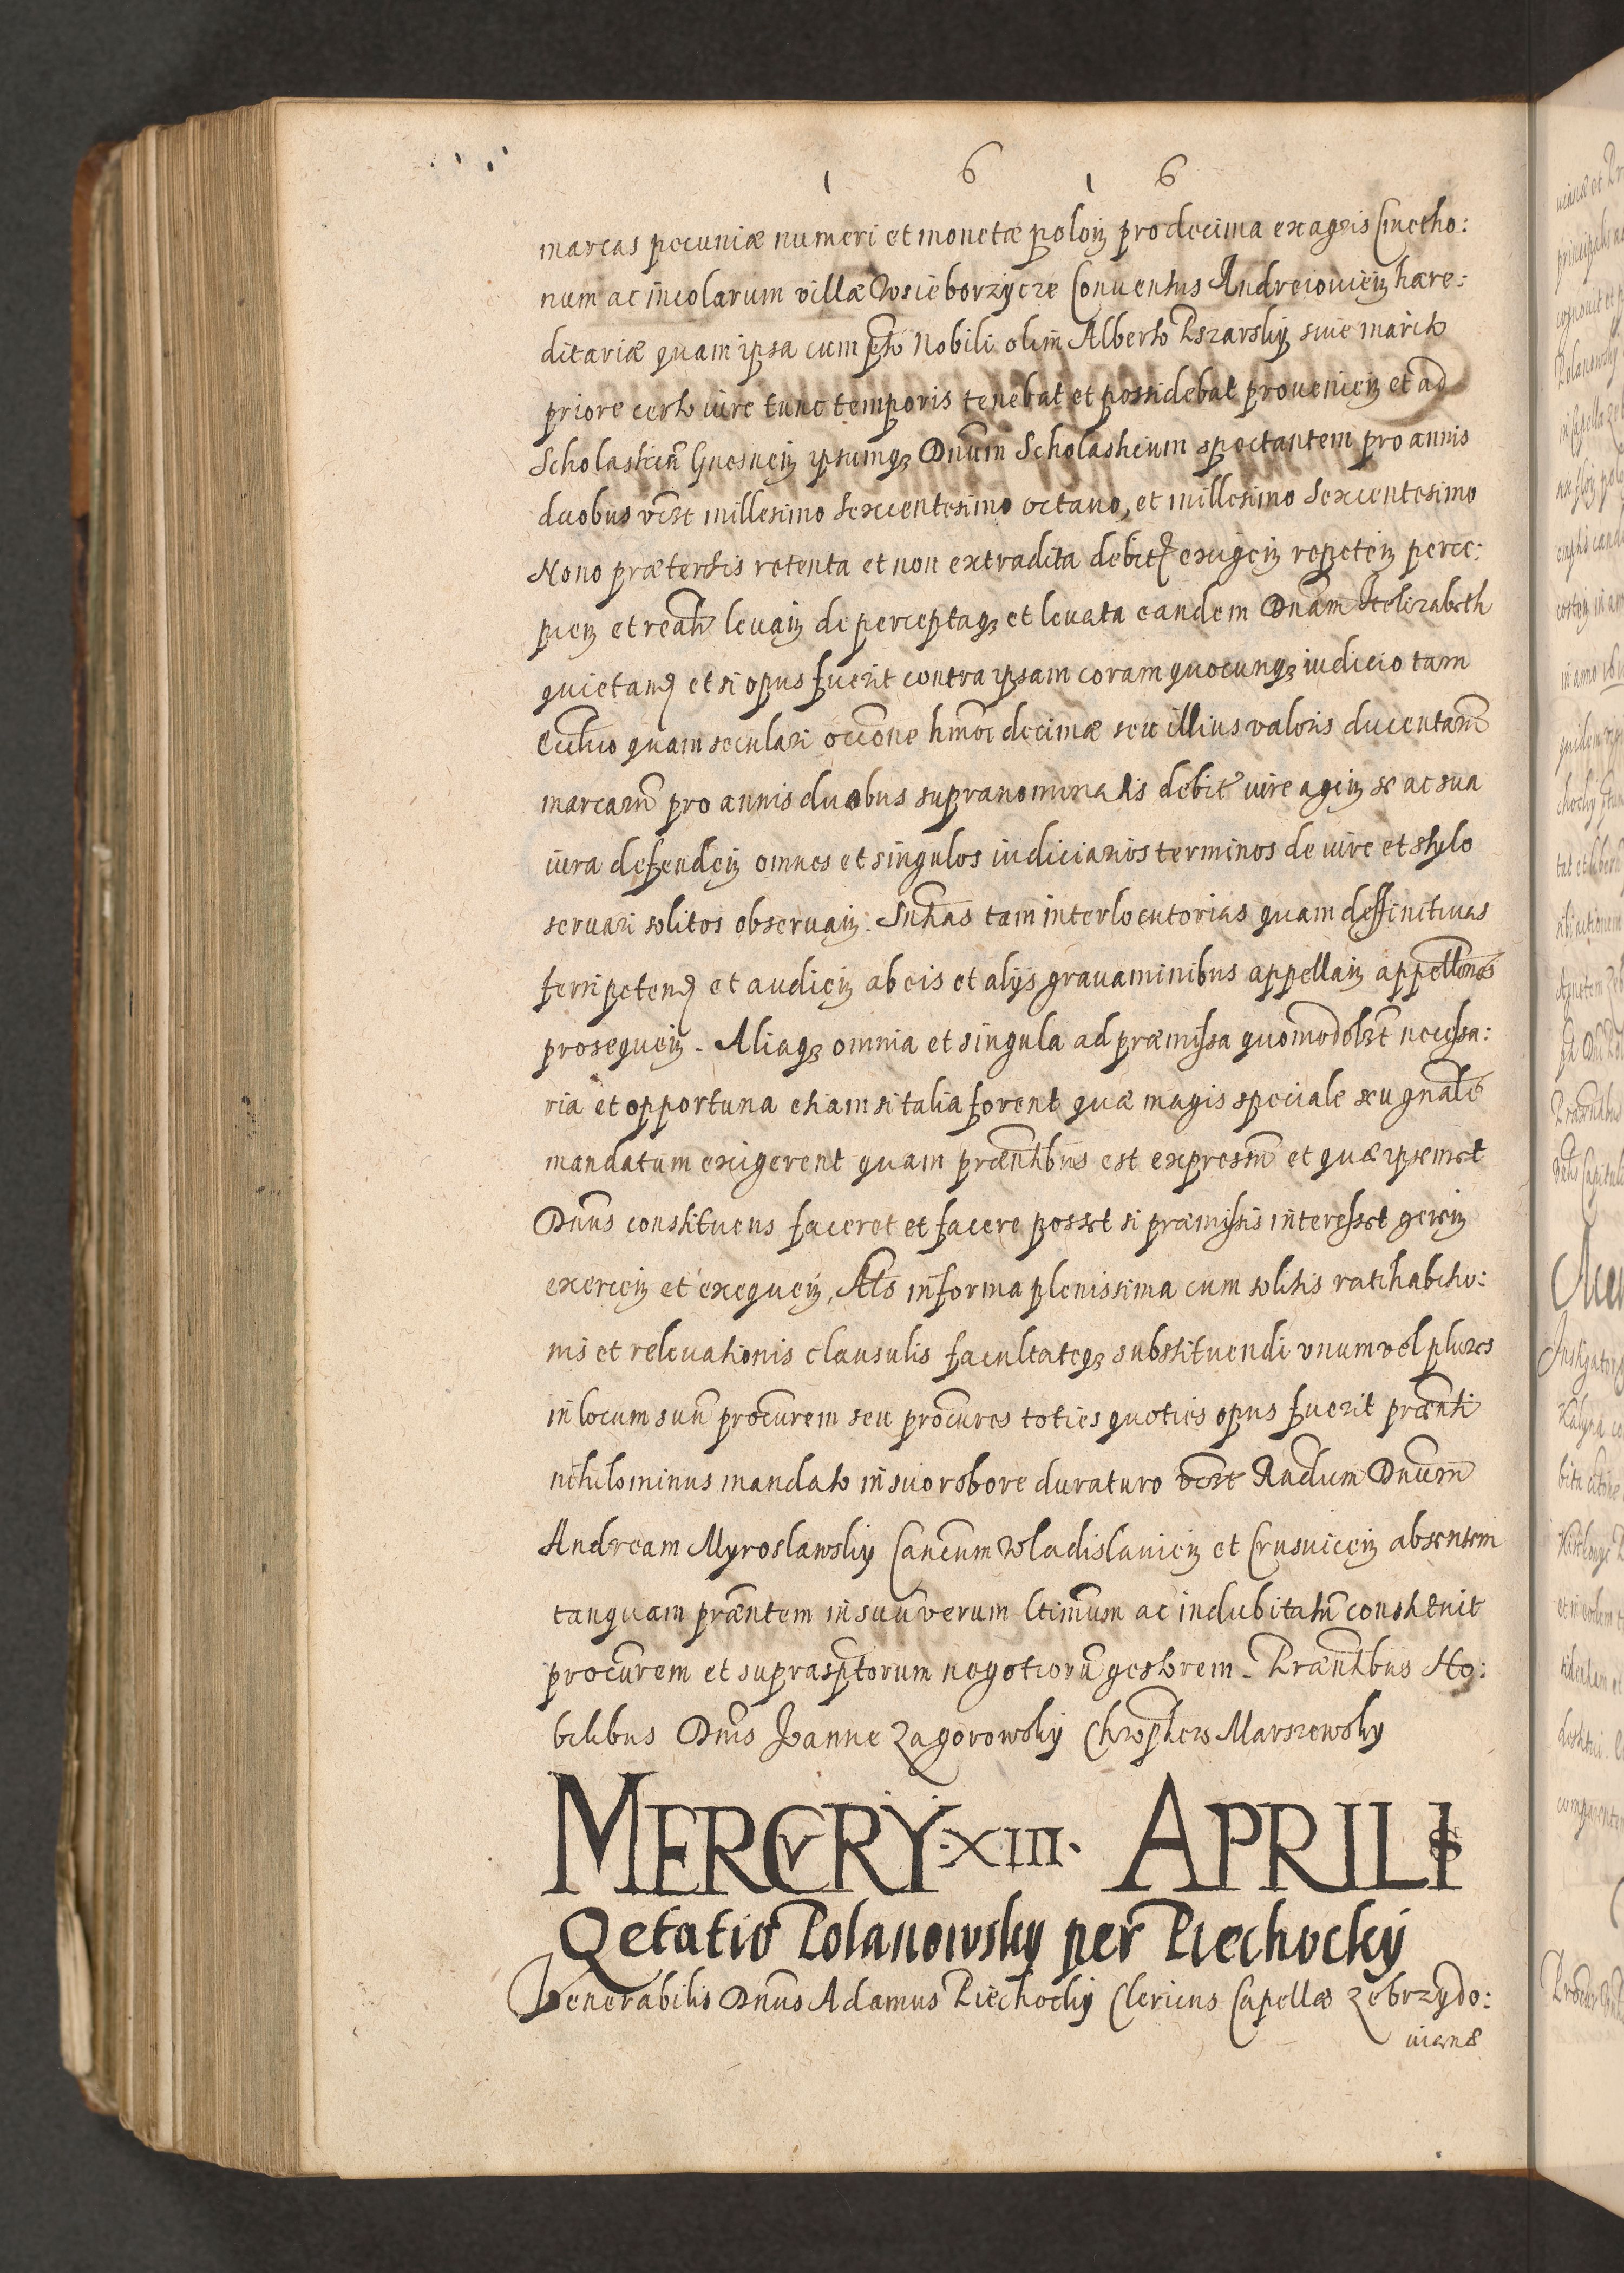 1 6 1 6
marcas pecuniæ numeri et monetæ poloīn pro decima ex agris Cmetho:
num ac incolarum villæ Wsieborzycze Conventus Andreiovieīn hære:
ditariæ quam ipsa cum p̄to Nobili olim Alberto Pszarsky sive marito
priore certo iure tunc temporis tenebat et possidebat provenieīn et ad
Scholasticā Gnesneīn ipsumq₃ Dnūm Scholasticum spectantem pro annis
duobus vc̄lt millesimo sexcentesimo octavo, et millesimo sexcentesimo
Nono præteritis retenta et non extradita debite exigeīn repeteīn perce:
pieīn et reālr levaīn de perceptaq₃ et levata eandem Dnām Helizabeth
quietanđ et si opus fuerit contra ipsam coram quocunq₃ iudicio tam
Ecclīco quam seculari occōne hmōi decimæ seu illius valoris ducentarū
marcarū pro annis duobus supranominatis debite iure ageīn se ac sua
iura defendeīn omnes et singulos iudiciarios terminos de iure et stylo
servari solitos observaīn. Sn̄tias tam interlocutorias quam deffinitivas
ferri petenđ et audieīn ab eis et alijs gravaminibus appellaīn appellōnes
prosequeīn. Aliaq₃ omnia et singula ad præmissa quomodolẕt necessa:
ria et opportuna etiam si talia forent quæ magis speciale seu gnāle
mandatum exigerent quam præn̄tibus est expressū et quæ ipsemet
Dnūs constituens faceret et facere posset si præmissis interesset gereīn
exerceīn et exequeīn, Als̄ in forma plenissima cum solitis ratihabitio:
nis et relevationis clausulis facultateq₃ substituendi unum vel plures
in locum suū procūrem seu procūres toties quoties opus fuerit præn̄ti
nihilominus mandato in suo robore duraturo vc̄lt Rndūm Dnūm
Andream Myroslawsky Canc̄um Wladislavieīn et Crusviceīn absentem
tanquam præn̄tem in suū verum ltimūm ac indubitatū constituit
procūrem et suprasp̄torum negotiorū gestorem. Præn̄tibus No:
bilibus Dn̄is Joanne Zagorowsky Chrōphero Marszewsky
MERCVRY · XIII · APRILIS
Qetatio Polanowsky per Piechocky
Venerabilis Dnūs Adamus Piechocky Clericus Capellæ Zebrzydo:
vianæ